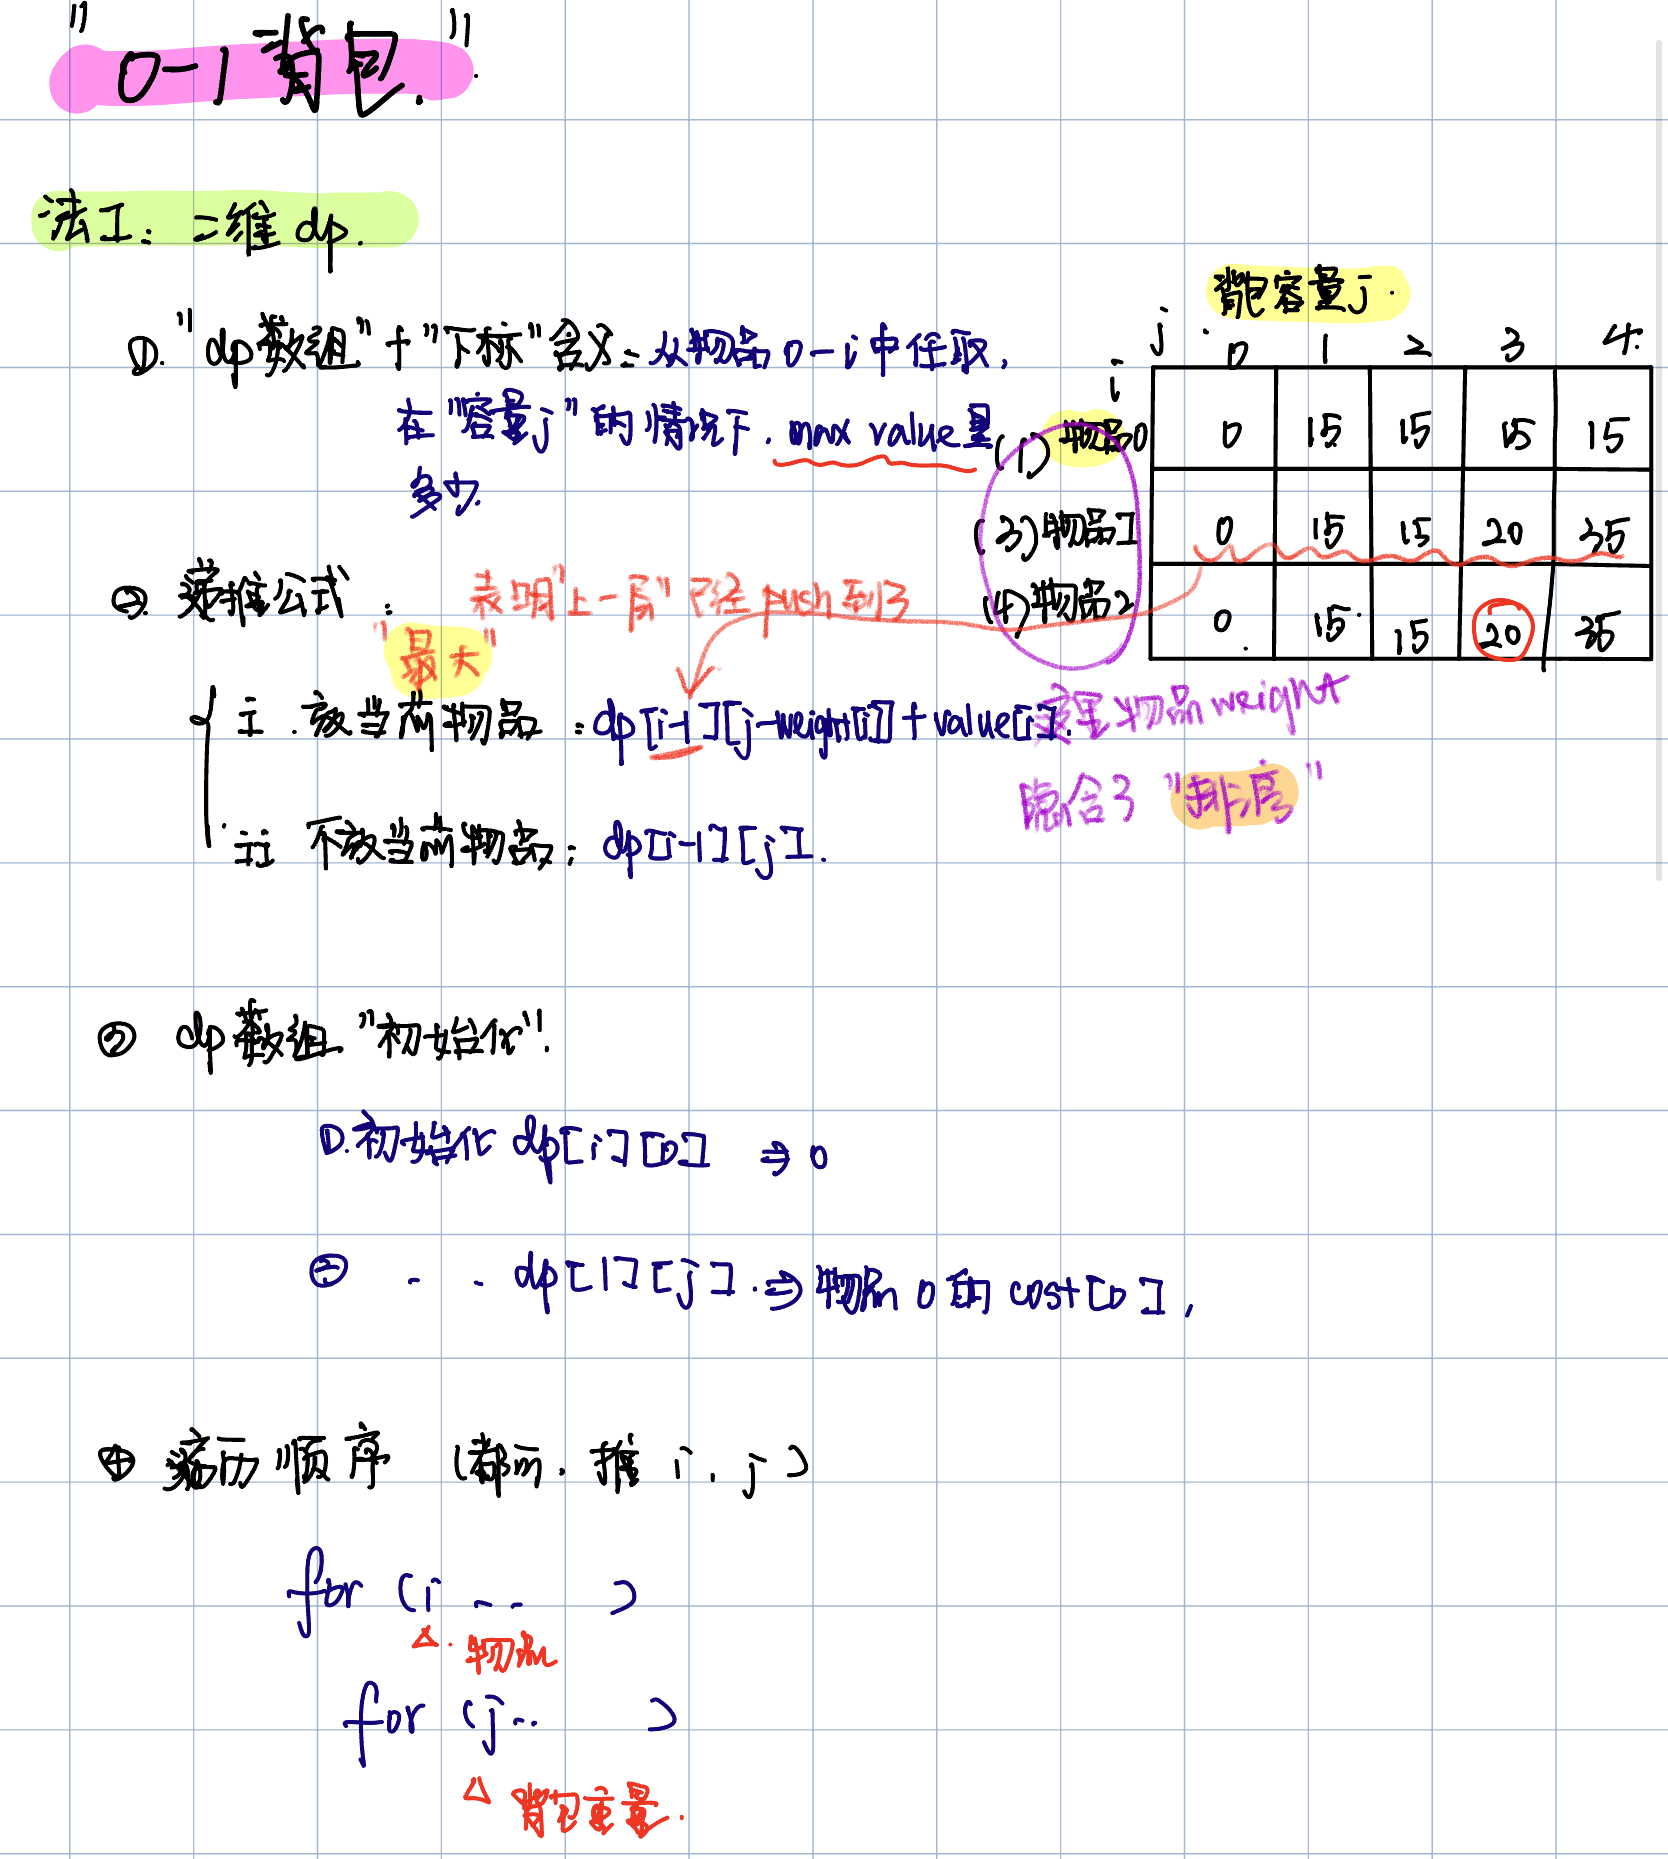 "0-1背包."
法I: 二维dp.
①. "dp数组"+"下标"含义: 从物品0-i中任取,
在"容量j"的情况下, max value是
多少.
背包容量j.
j 0 1 2 3 4.
i
(1) 物品0 0 15 15 15 15
(3) 物品I 0 15 15 20 35
(4) 物品2 0. 15 15 20 35
②. 递推公式:
表明"上一层"已经push到了
"最大"
i. 放当前物品: dp[i-1][j-weight[i]]+value[i].
ii 不放当前物品: dp[i-1][j].
这里物品weight
隐含了"排序"
③ dp数组"初始化".
①.初始化 dp[i][0] ⇒ 0
② - - dp[1][j]. ⇒ 物品0的cost[0],
④ 遍历顺序 (都可. 推 i, j)
for (i -- )
△. 物品
for (j-- )
△ 背包重量.